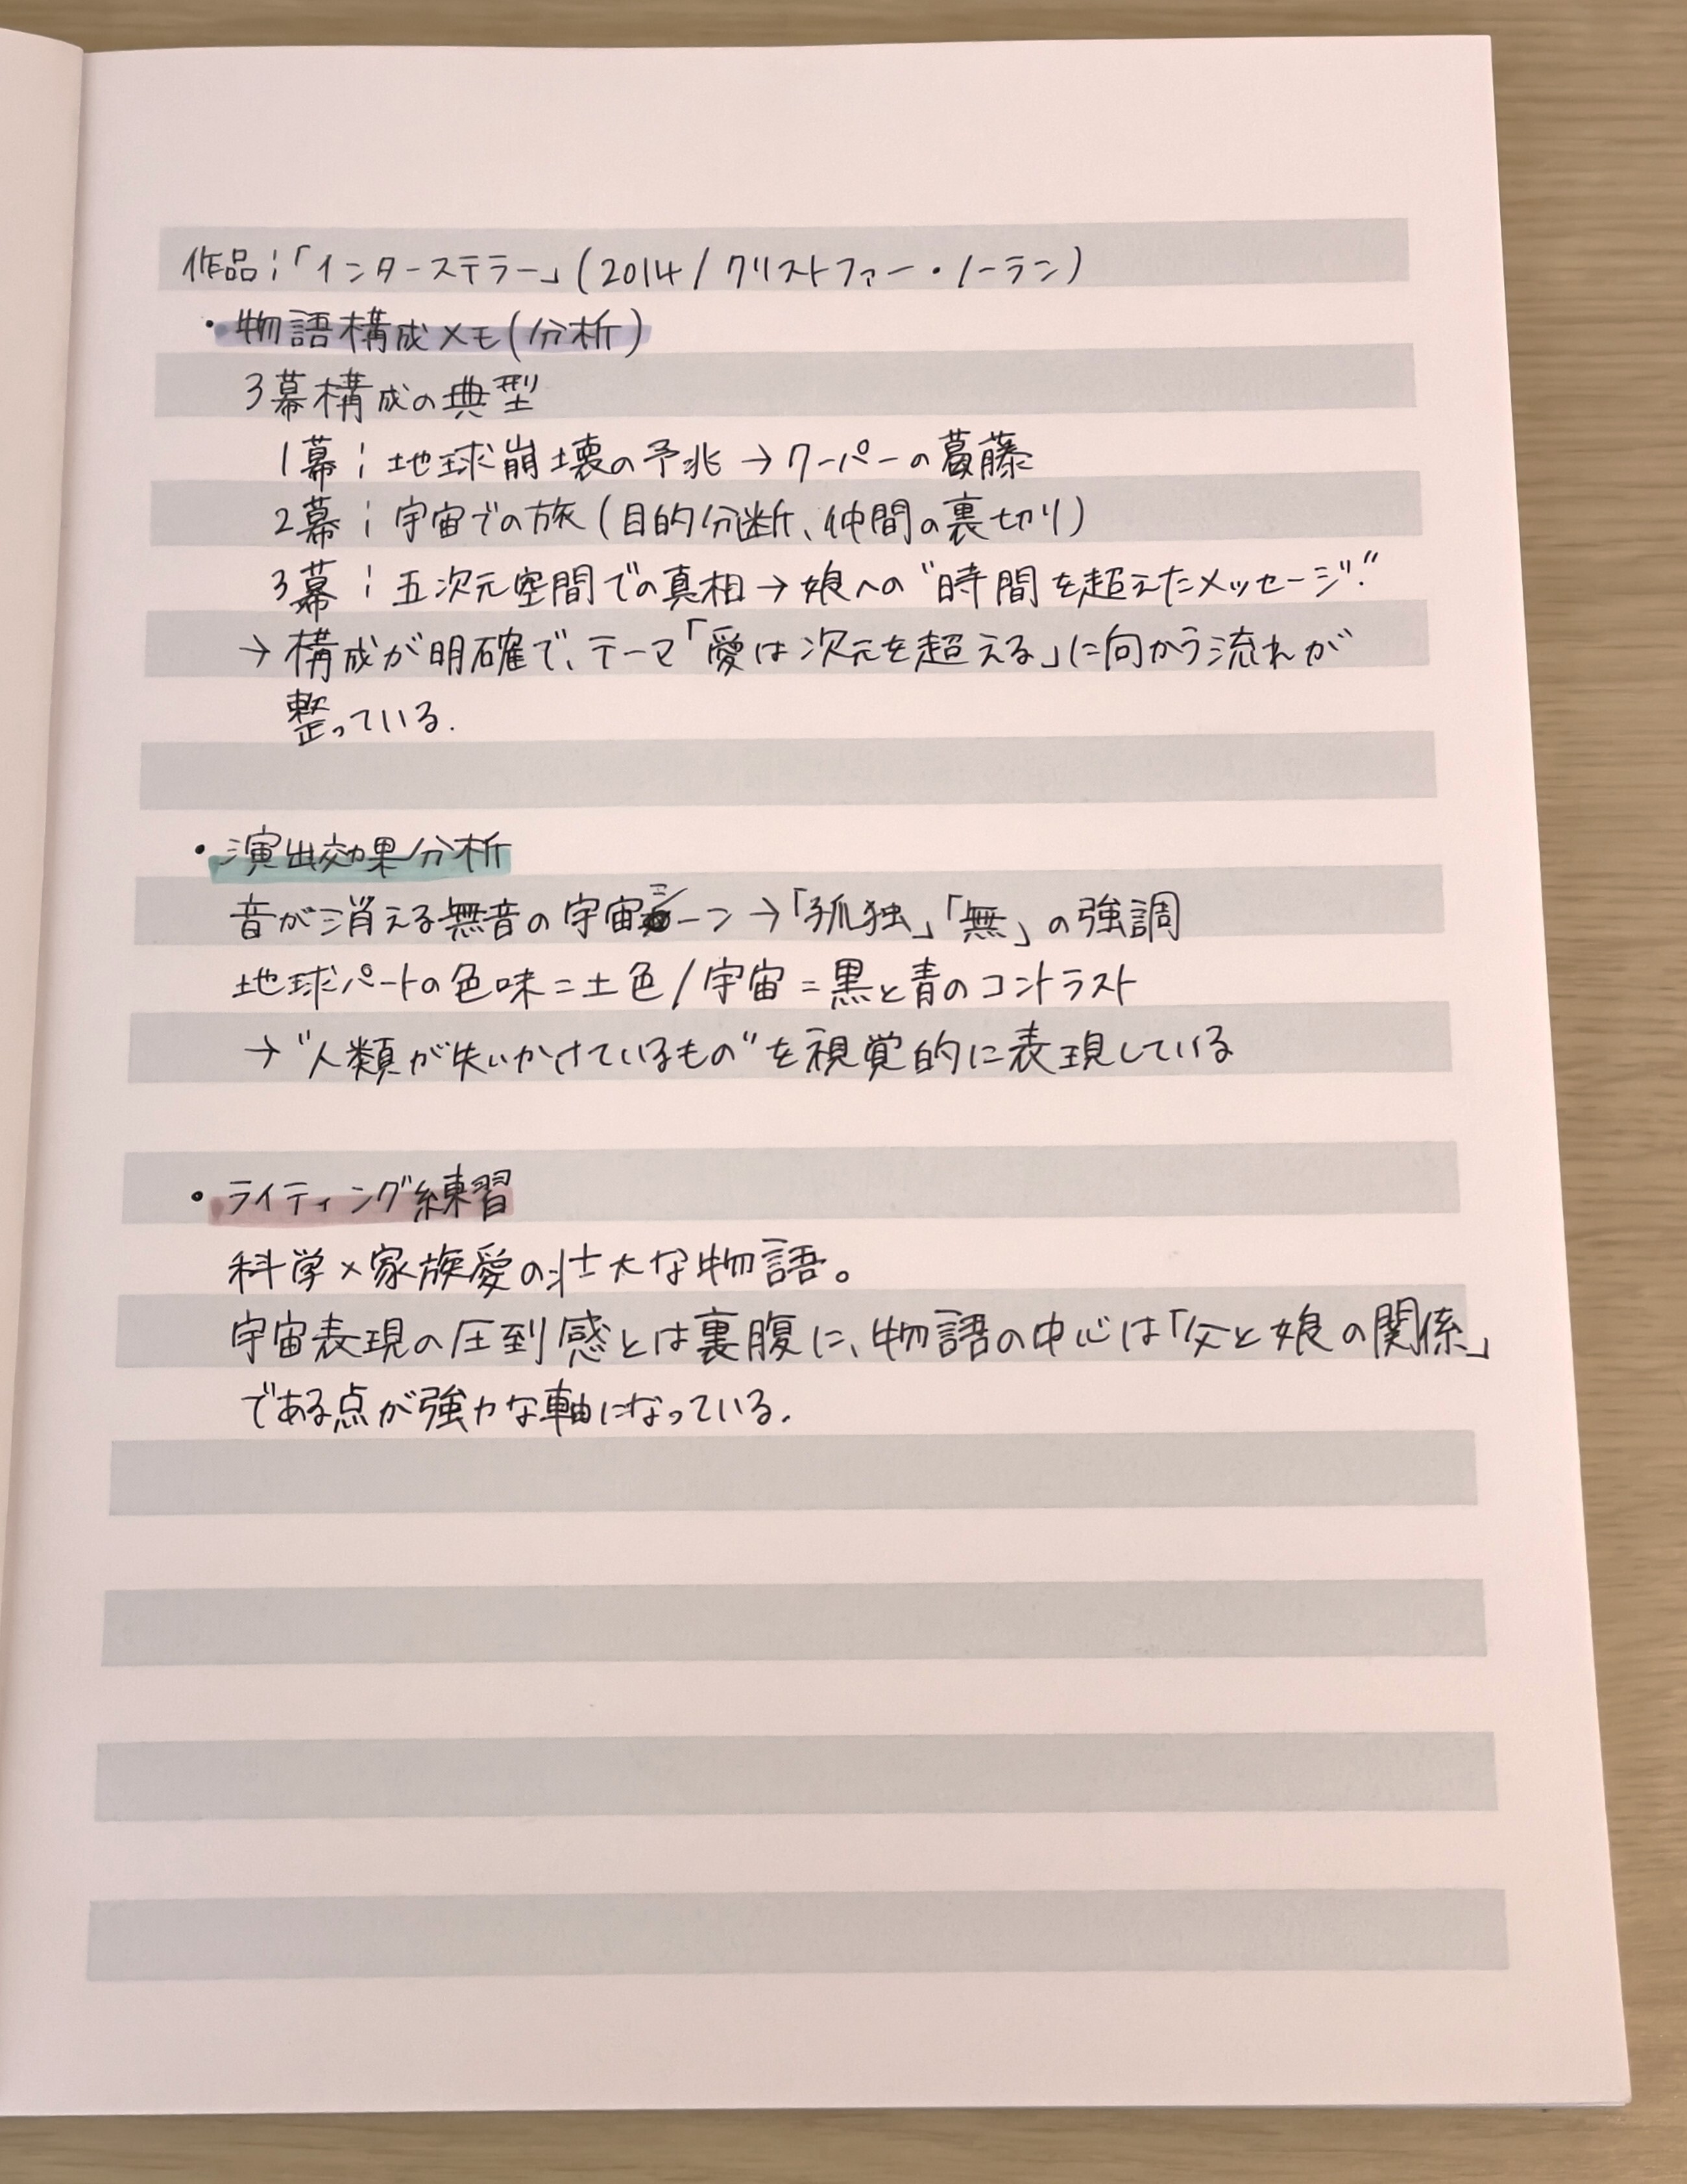 作品:「インターステラー」(2014/クリストファー・ノーラン)
・物語構成メモ(分析)
3幕構成の典型
1幕:地球崩壊の予兆→クーパーの葛藤
2幕:宇宙での旅(目的分断、仲間の裏切り)
3幕:五次元空間での真相→娘への“時間を超えたメッセージ.”
→構成が明確で、テーマ「愛は次元を超える」に向かう流れが
整っている.
・演出効果分析
音が消える無音の宇宙シーン→「孤独」「無」の強調
地球パートの色味=土色/宇宙=黒と青のコントラスト
→“人類が失いかけているもの”を視覚的に表現している
・ライティング練習
科学×家族愛の壮大な物語。
宇宙表現の圧到感とは裏腹に、物語の中心は「父と娘の関係」
である点が強力な軸になっている.